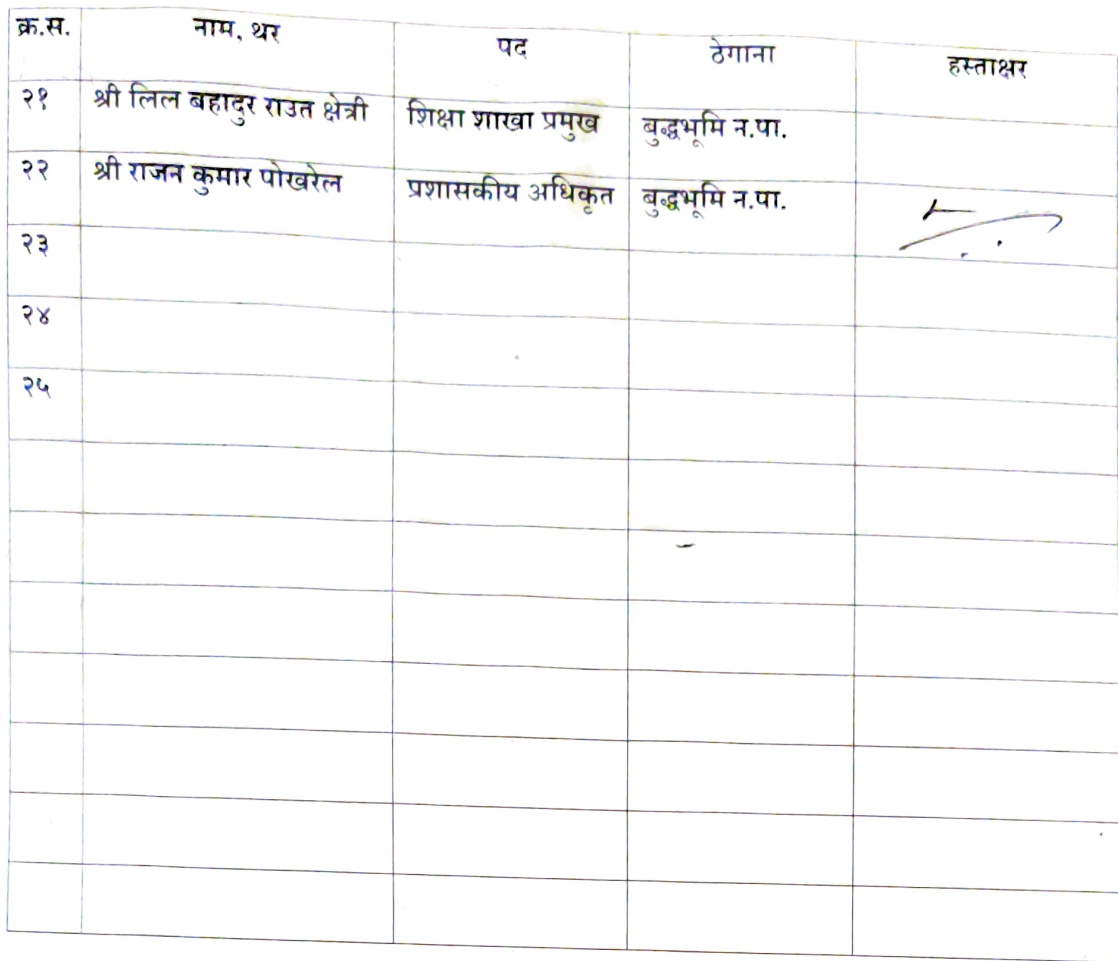 क्र.स. नाम, थर पद ठेगाना हस्ताक्षर
२१ श्री लिल बहादुर राउत क्षेत्री शिक्षा शाखा प्रमुख बुद्धभूमि न.पा.
२२ श्री राजन कुमार पोखरेल प्रशासकीय अधिकृत बुद्धभूमि न.पा.
२३
२४
२५